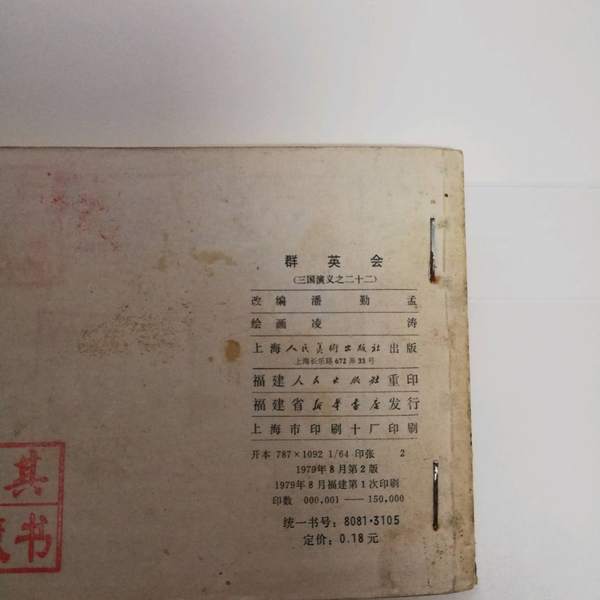 群英会
(三国演义之二十二)
改编 潘勤孟
绘画 凌涛
上海人民美術出版社出版
上海长乐路672弄33号
福建人民出版社重印
福建省新华書店发行
上海市印刷十厂印刷
开本 787×1092 1/64 印张 2
1979年8月第2版
1979年8月福建第1次印刷
印数 000,001——150,000
统一书号: 8081·3105
定价: 0.18元
其
书